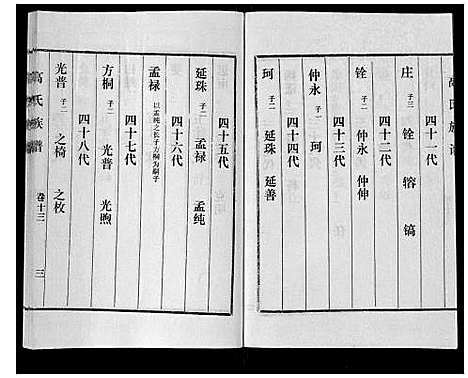 高氏族谱
四十一代
庄 子三 铨 镕 镐
四十二代
铨 子二 仲永 仲伸
四十三代
仲永 子一 珂
四十四代
珂 子二 延珠 延善
四十五代
延珠 子二 孟禄 孟纯
四十六代
孟禄 以孟纯之长子方桐为嗣子
四十七代
方桐 子二 光普 光煦
四十八代
光普 子二 之椅 之枚
高氏族谱 卷十三 三